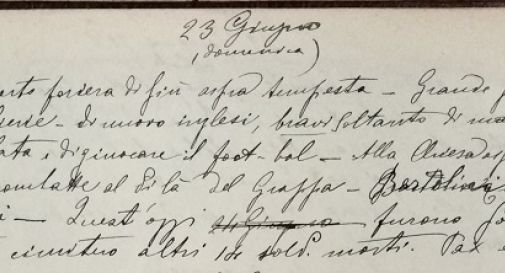 23 Giugno
(domenica)
foriera di più aspra tempesta — Grande
di nuovo inglesi, bravi soltanto di ma
e di giuocare il foot-bal — Alla Chiesa os
combatte al di là del Grappa — Bertolini
i — Quest'oggi 24 Giugno furono
cimitero altri 14 sold. morti. Pax